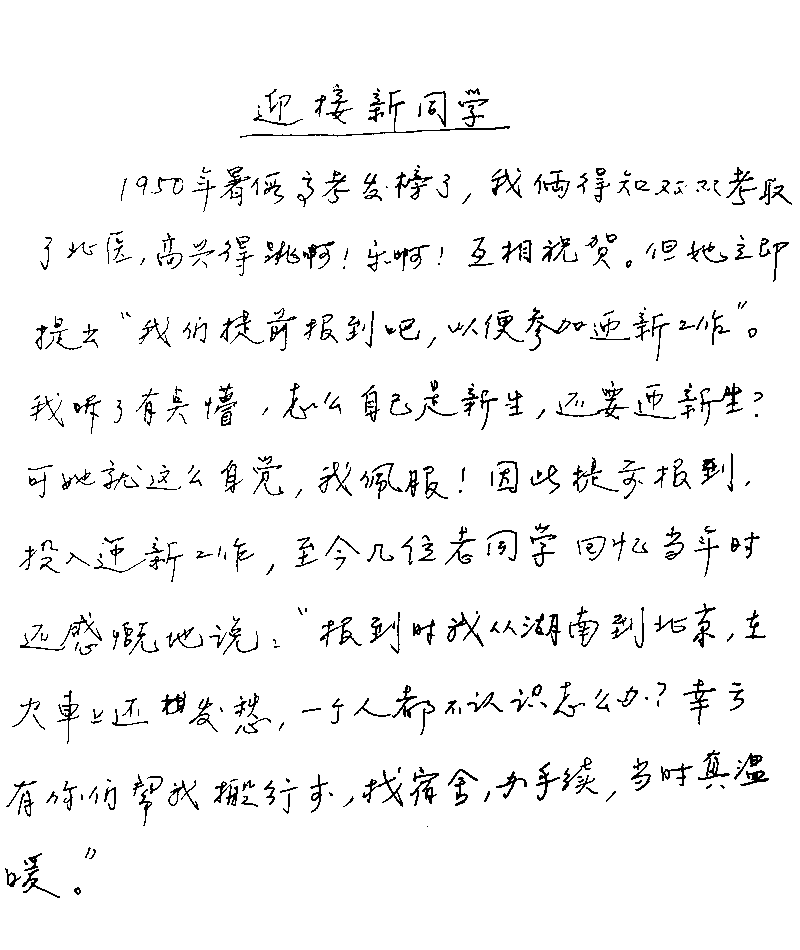 迎接新同学
1950年暑假高考发榜了，我俩得知双双考取
了北医，高兴得跳啊！乐啊！互相祝贺。但她立即
提出“我们提前报到吧，以便参加迎新工作”。
我听了有点懵，怎么自己是新生，还要迎新生？
可她就这么自觉，我佩服！因此提前报到，
投入迎新工作，至今几位老同学回忆当年时
还感慨地说：“报到时我从湖南到北京，在
火車上还发愁，一个人都不认识怎么办？幸亏
有你们帮我搬行李，找宿舍，办手续，当时真温
暖。”